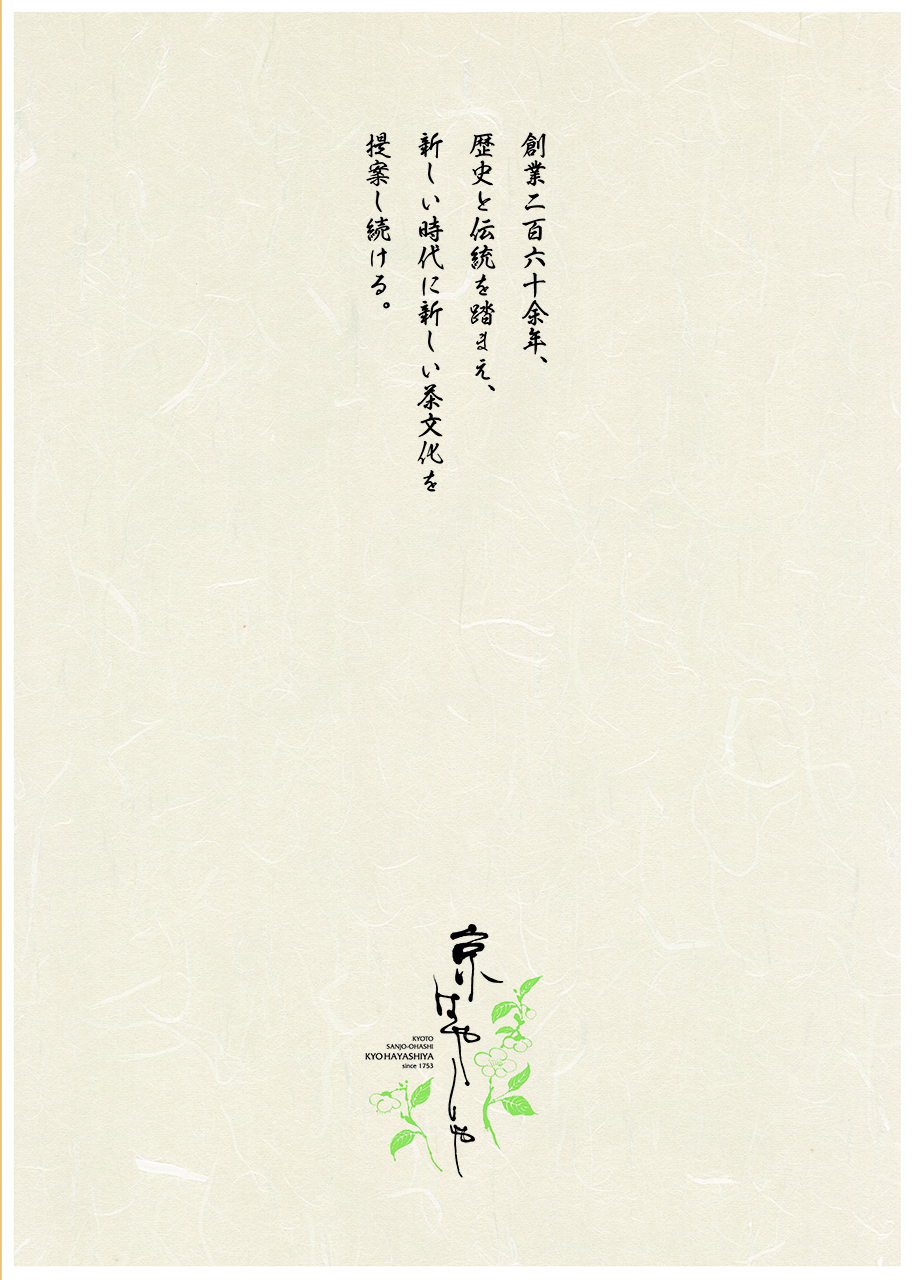 創業二百六十余年、
歴史と伝統を踏まえ、
新しい時代に新しい茶文化を
提案し続ける。
京はやしや
KYOTO
SANJO-OHASHI
KYO HAYASHIYA
since 1753